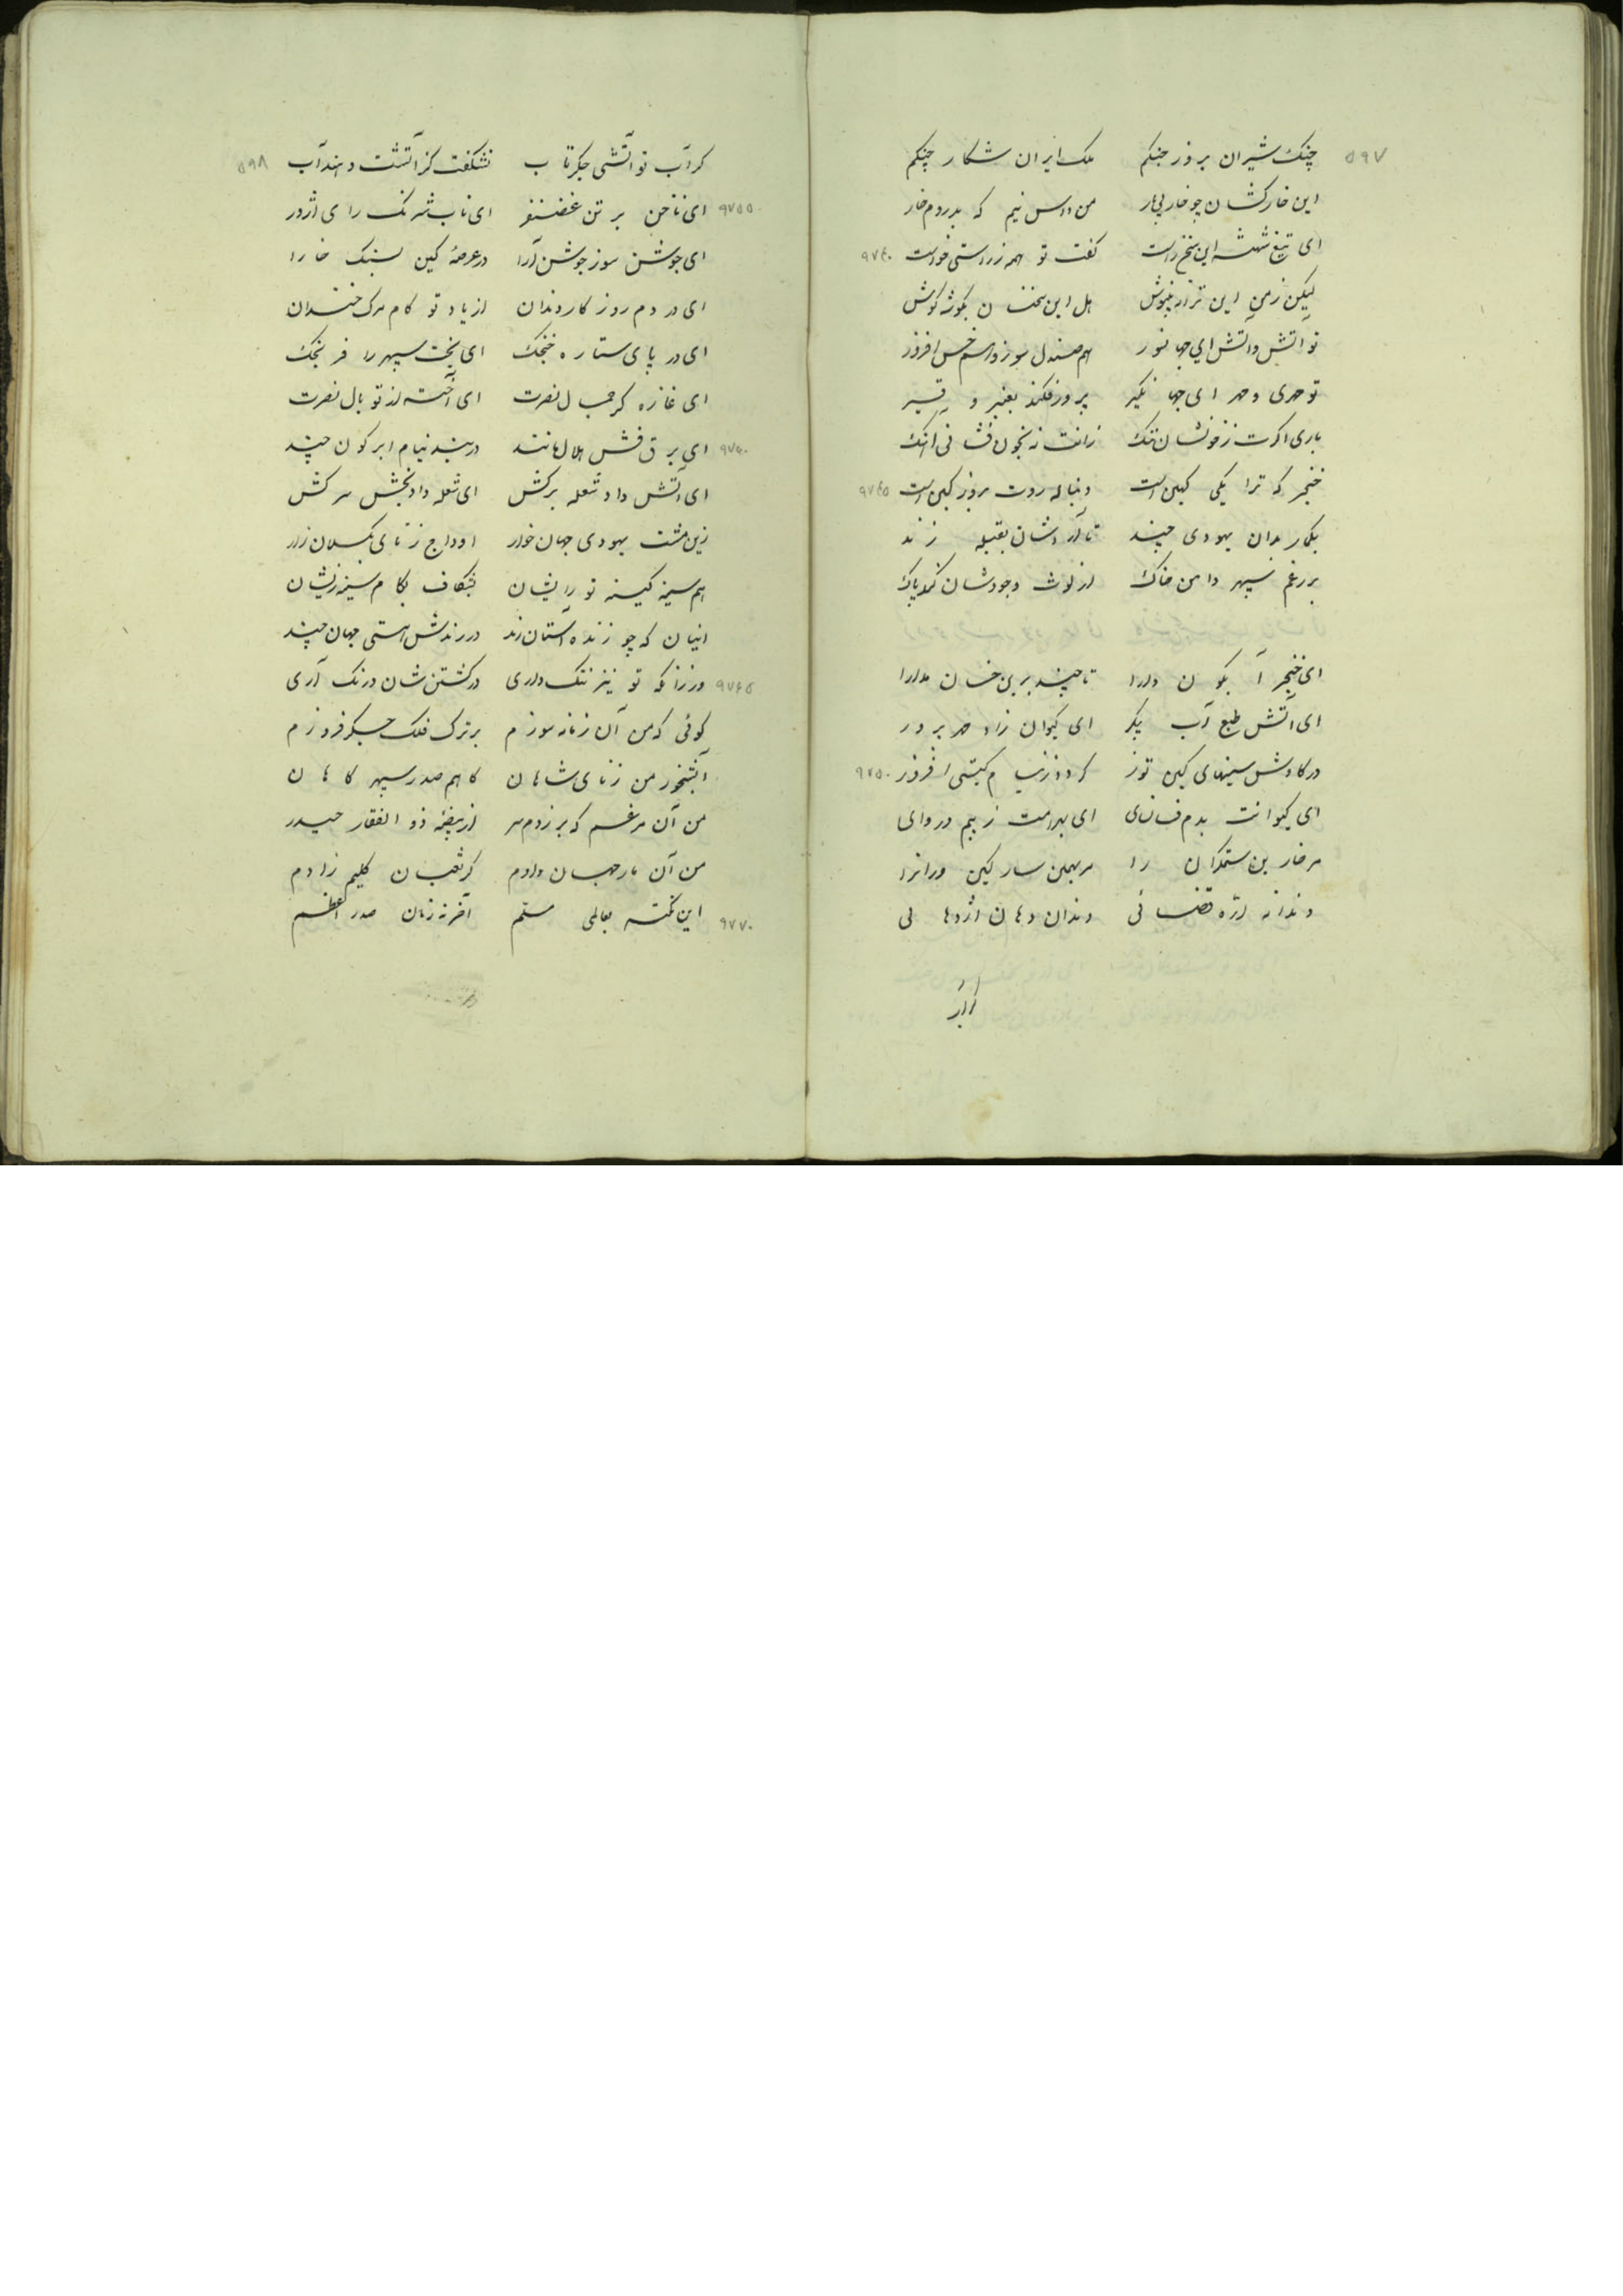 ۵۹۷ چنک شیران بروز جنکم ملک ایران شکار چنکم
این خارکشان چو خار بی بار من داس نیم که بدروم خار
ای تیغ شهنشه این سخن راست کفت تو همه ز راستی خواست ۹۷۴۰
لیکن ز من این ترانه بنیوش هل این سخنان بکوشه کوش
تو آتش و آتش ای جهانسوز هم صندل سوز و هم خس افروز
تو مهری و مهر ای جهانگیر پرتو فکند بعنبر و قیر
باری اکرت ز خونشان ننک
خنجر که ترا یکی کهین است دنباله روت بروز کین است ۹۷۴۵
بکمار بدان یهودی چند تا در دشان بقبیله زند
بر رغم سپهر دامن خاک از لوث وجودشان کند پاک
ای خنجر آبکون دارا تا چند برین خسان مدارا
ای آتش طبع آب پیکر ای کیوان زاد مهر پرور
در کاوش سینهای کین توز کرد و ز نیام کیتی افروز ۹۷۵۰
ای کیوانت بدم فسانی ای بهرامت ز بیم دروای
سر خار بن ستمکران را
دندانه اره قضائی دندان دهان اژدهائی
۵۹۸ کر آب تو آتشی جکر تاب نشکفت کز آتشت دهند آب
ای ناخن بر تن غضنفر ای ناب شرنک رای اژدر ۹۷۵۵
ای جوشن سوز جوشن آرا در عرصه کین بسنک خارا
ای در دم روز کار دندان از یاد تو کام مرک خندان
ای در پای ستاره خنجک ای بخت سپهر را فرنجک
ای غازه کر جمال نصرت ای آخته از تو بال نصرت
ای برق فش هلال مانند در بند نیام ابر کون چند ۹۷۶۰
ای آتش داد شعله برکش ای شعله داد بخش سرکش
زین مشت یهودی جهان خوار اوداج ز نای بکسلان زار
هم سینه کینه توز ایشان بشکاف بکام سینه ریشان
اینان که چو زنده آستان زند در زندش هستی جهان چند
ور زانکه تو نیز ننک داری در کشتن شان درنک آری ۹۷۶۵
کوئی که من آن زبانه سوزم بر ترک فلک جکر فروزم
آبشخور من ز نای شاهان کاهم صدر سپهر کاهان
من آن مرغم که بر زدم سر از بیضه ذو الفقار حیدر
من آن مار جهان دادم کز ثعبان کلیم زادم
این نکته بعالمی مسلم آخر نه زبان صدر اعظم ۹۷۷۰